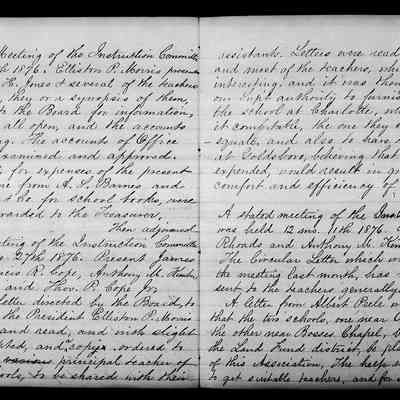 Meeting of the Instruction Committe
1876. Elliston P. Morris presen
H. Jones & several of the teachers
they or a synopsis of them,
to the Board for information,
all open, and the accounts
The accounts of Office
examined and approved.
for expenses of the present
one from A. S. Barnes and
for school books, were
forwarded to the Treasurer.
Then adjourned
Meeting of the Instruction Committe
27th 1876. Present James
Francis R. Cope, Anthony M. Kimber,
and Thos. P. Cope Jr.
letter directed by the Board, to
the President Elliston P. Morris
and read, and with slight
and copies ordered to
various principal teacher of
schools, to be shared with their
assistants. Letters were read
and most of the teachers, wh
interesting, and it was then
our Supt authority to furnis
the school at Charlotte, wh
it comfortable, the one they
equate, and also to have
at Goldsboro, believing that
expended, would result in
comfort and efficiency of
A stated meeting of the Inst
was held 12 mo. 11th 1876.
Rhoads and Anthony M. Kim
The Circular Letter which w
the meeting last month, has
sent to the teachers generally.
A letter from Albert Peele
that the two schools, one near
the other near Bosses Chapel,
the Land Fund district, be pl
of this Association. The help
to get suitable teachers, and for